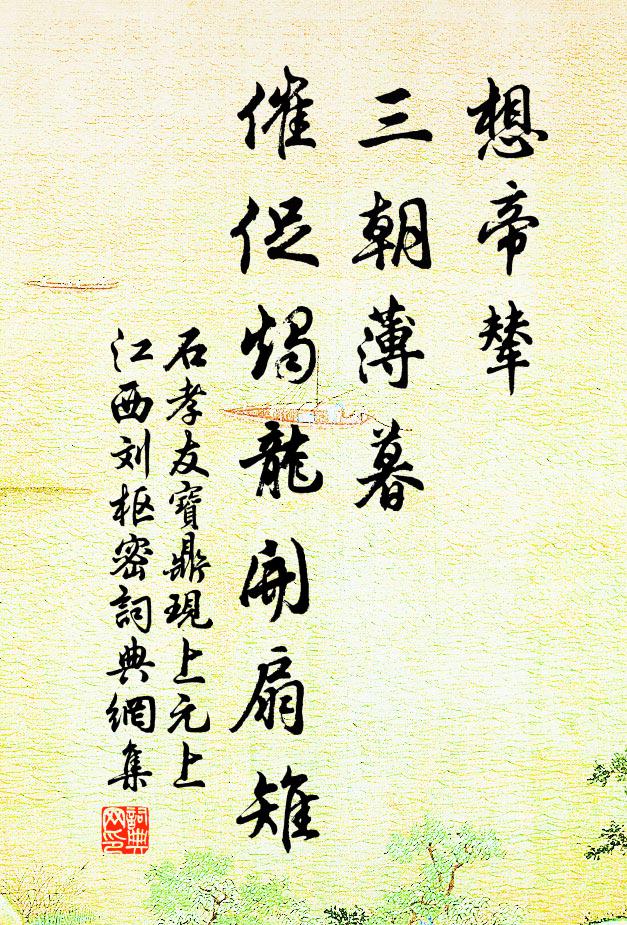 想帝輦
三朝薄暮
催促燭龍開扇雉
石孝友寶鼎現上元上
江西刘枢密詞典網集
詞典网印